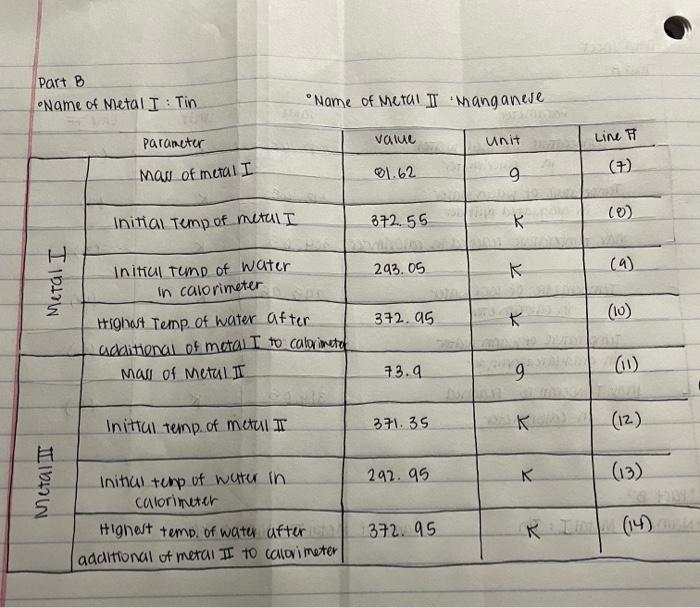 Part B
°Name of Metal I : Tin
°Name of Metal II : Manganese
Parameter value unit Line #
Metal I
Mass of metal I 81.62 g (7)
Initial Temp of metal I 372.55 K (8)
Initial temp of water
in calorimeter 293.05 K (9)
Highest Temp. of water after
additional of metal I to calorimeter 372.95 K (10)
Metal II
Mass of Metal II 73.9 g (11)
Initial temp. of metal II 371.35 K (12)
Initial temp of water in
calorimeter 292.95 K (13)
Highest temp. of water after
additional of metal II to calorimeter 372.95 K (14)